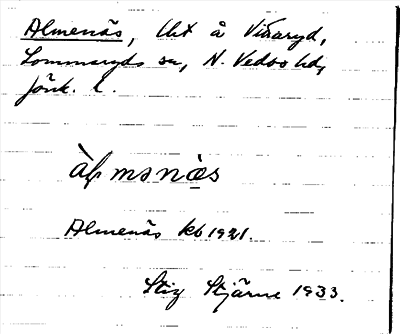 Almenäs, lht å Viaryd,
Lommaryds sn, N. Vedbo hd,
Jönk. l.
àlmənæ̀s
Almenäs kb 1921.
Stig Stjärne 1933.